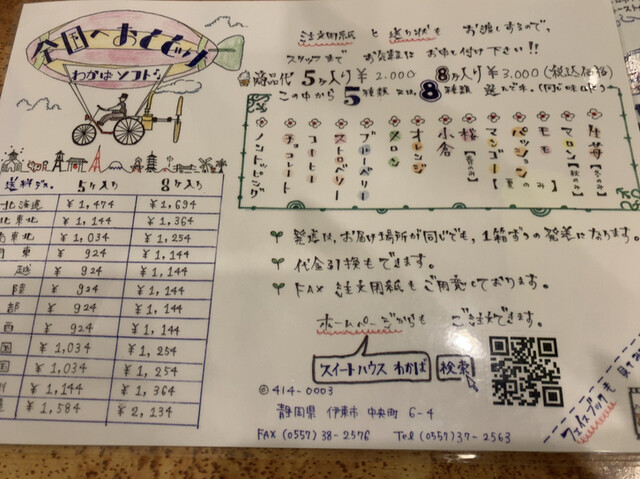 全国へおとどけ
わかばソフト
注文用紙 と 送り状も お渡しするので、
スタッフまで お気軽に お申し付け下さい!!
商品代 5ヶ入り ¥2.000 8ヶ入り ¥3.000(税込価格)
この中から 5種類 又は、8種類 選んで下さい。
生苺【冬のみ】
マロン【秋のみ】
モモ
パッション【夏のみ】
マンゴー
桜【春のみ】
小倉
オレンジ
メロン
ブルーベリー
ストロベリー
コーヒー
チョコレート
ノントッピング
送料 5ヶ入り 8ヶ入り
北海道 ¥1,474 ¥1,694
北東北 ¥1,144 ¥1,364
南東北 ¥1,034 ¥1,254
東 ¥924 ¥1,144
越 ¥924 ¥1,144
陸 ¥924 ¥1,144
部 ¥924 ¥1,144
西 ¥924 ¥1,144
国 ¥1,034 ¥1,254
国 ¥1,034 ¥1,254
州 ¥1,144 ¥1,364
¥1,584 ¥2,134
発送は、お届け場所が同じでも、1箱ずつの発送になります。
代金引換もできます。
FAX 注文用紙もご用意しております。
ホームページからも ご注文できます。
スイートハウス わかば 検索
〒414-0003
静岡県 伊東市 中央町 6-4
FAX (0557) 38-2576 Tel (0557) 37-2563
フェイスブックも